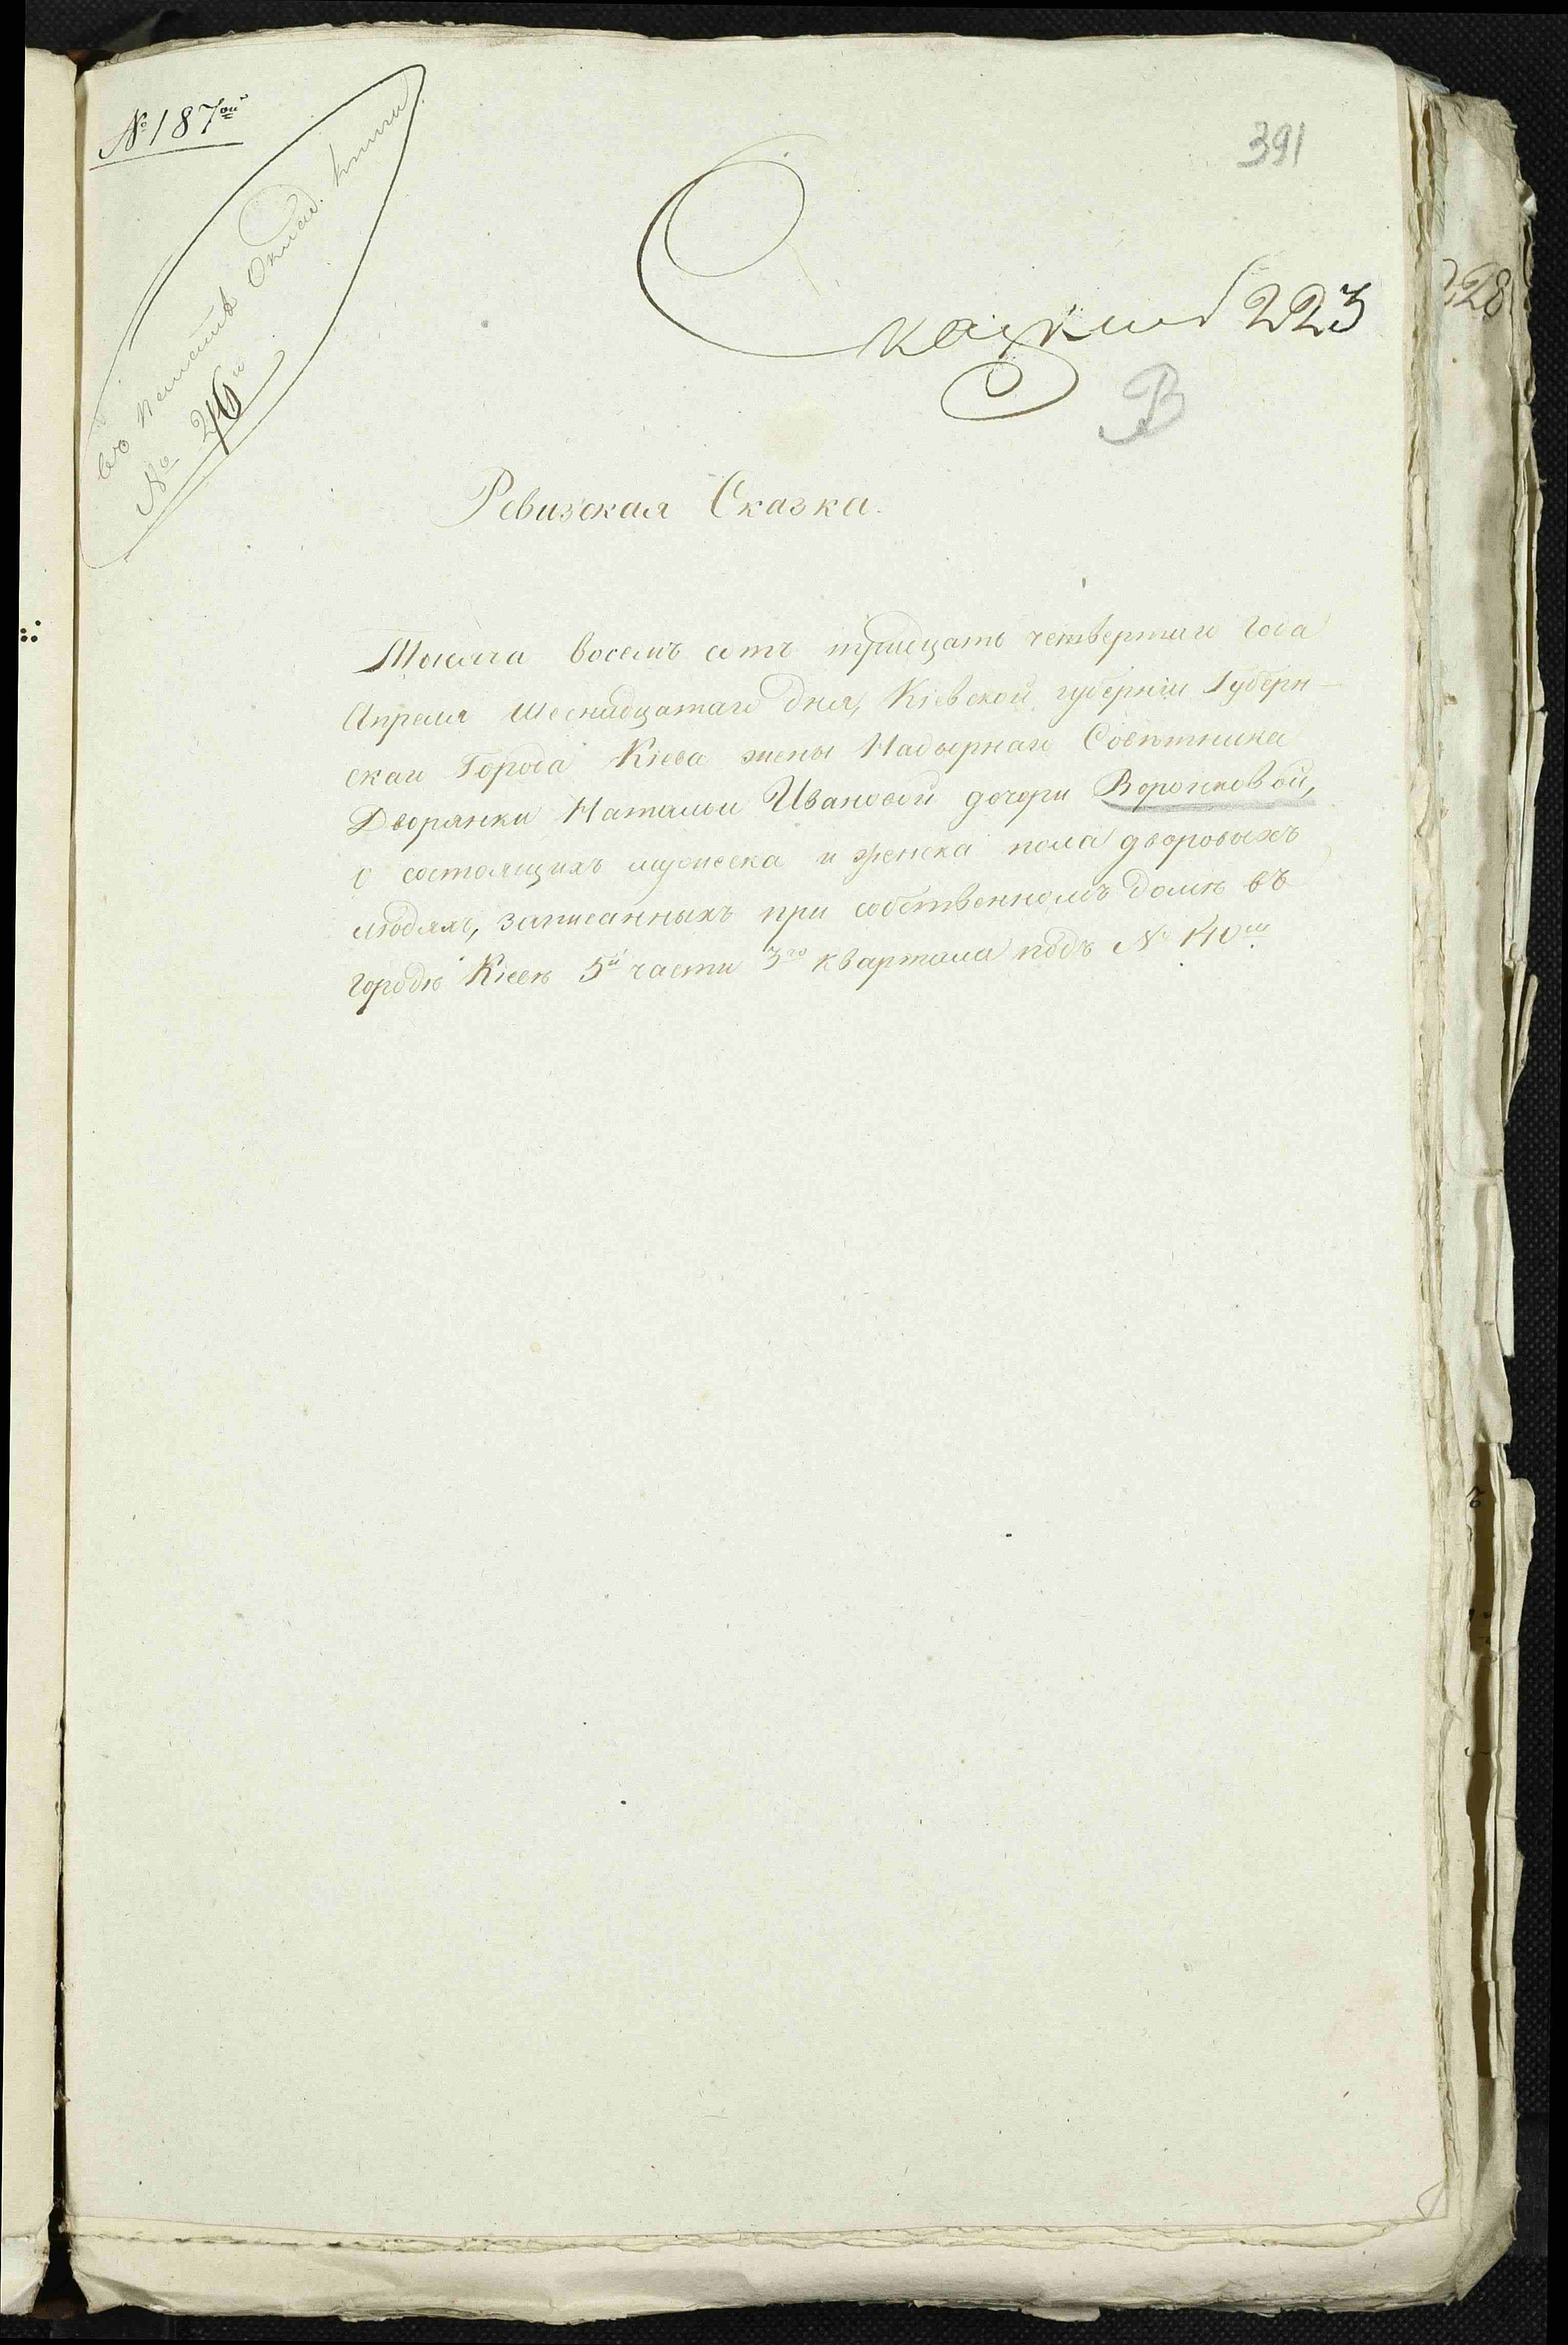 № 187ой
391
223
228
В
№ 26й
Ревизская Сказка.
Тысяча восемь сотъ тридцать четвертаго года
Апреля Шеснадцатаго дня, Кіевской губерніи Губерн-
скаго Города Кіева жены Надворнаго Совѣтника
Дворянки Натальи Ивановой дочери Воронковой,
о состоящихъ мужеска и женска пола дворовыхъ
людяхъ, записанныхъ при собственномъ домѣ въ
городѣ Кіевѣ 5й части 3го квартала подъ №